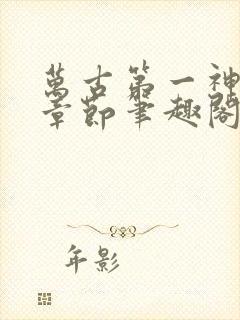 萬古第一神
章節筆趣閣
年影